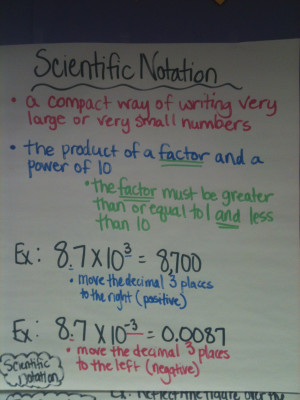 Scientific Notation
• a compact way of writing very
large or very small numbers
• the product of a factor and a
power of 10
• the factor must be greater
than or equal to 1 and less
than 10
Ex: 8.7 x 10³ = 8,700
• move the decimal 3 places
to the right (positive)
Ex: 8.7 x 10⁻³ = 0.0087
• move the decimal 3 places
to the left (negative)
Scientific
Notation
Ex: Reflect the figure over the